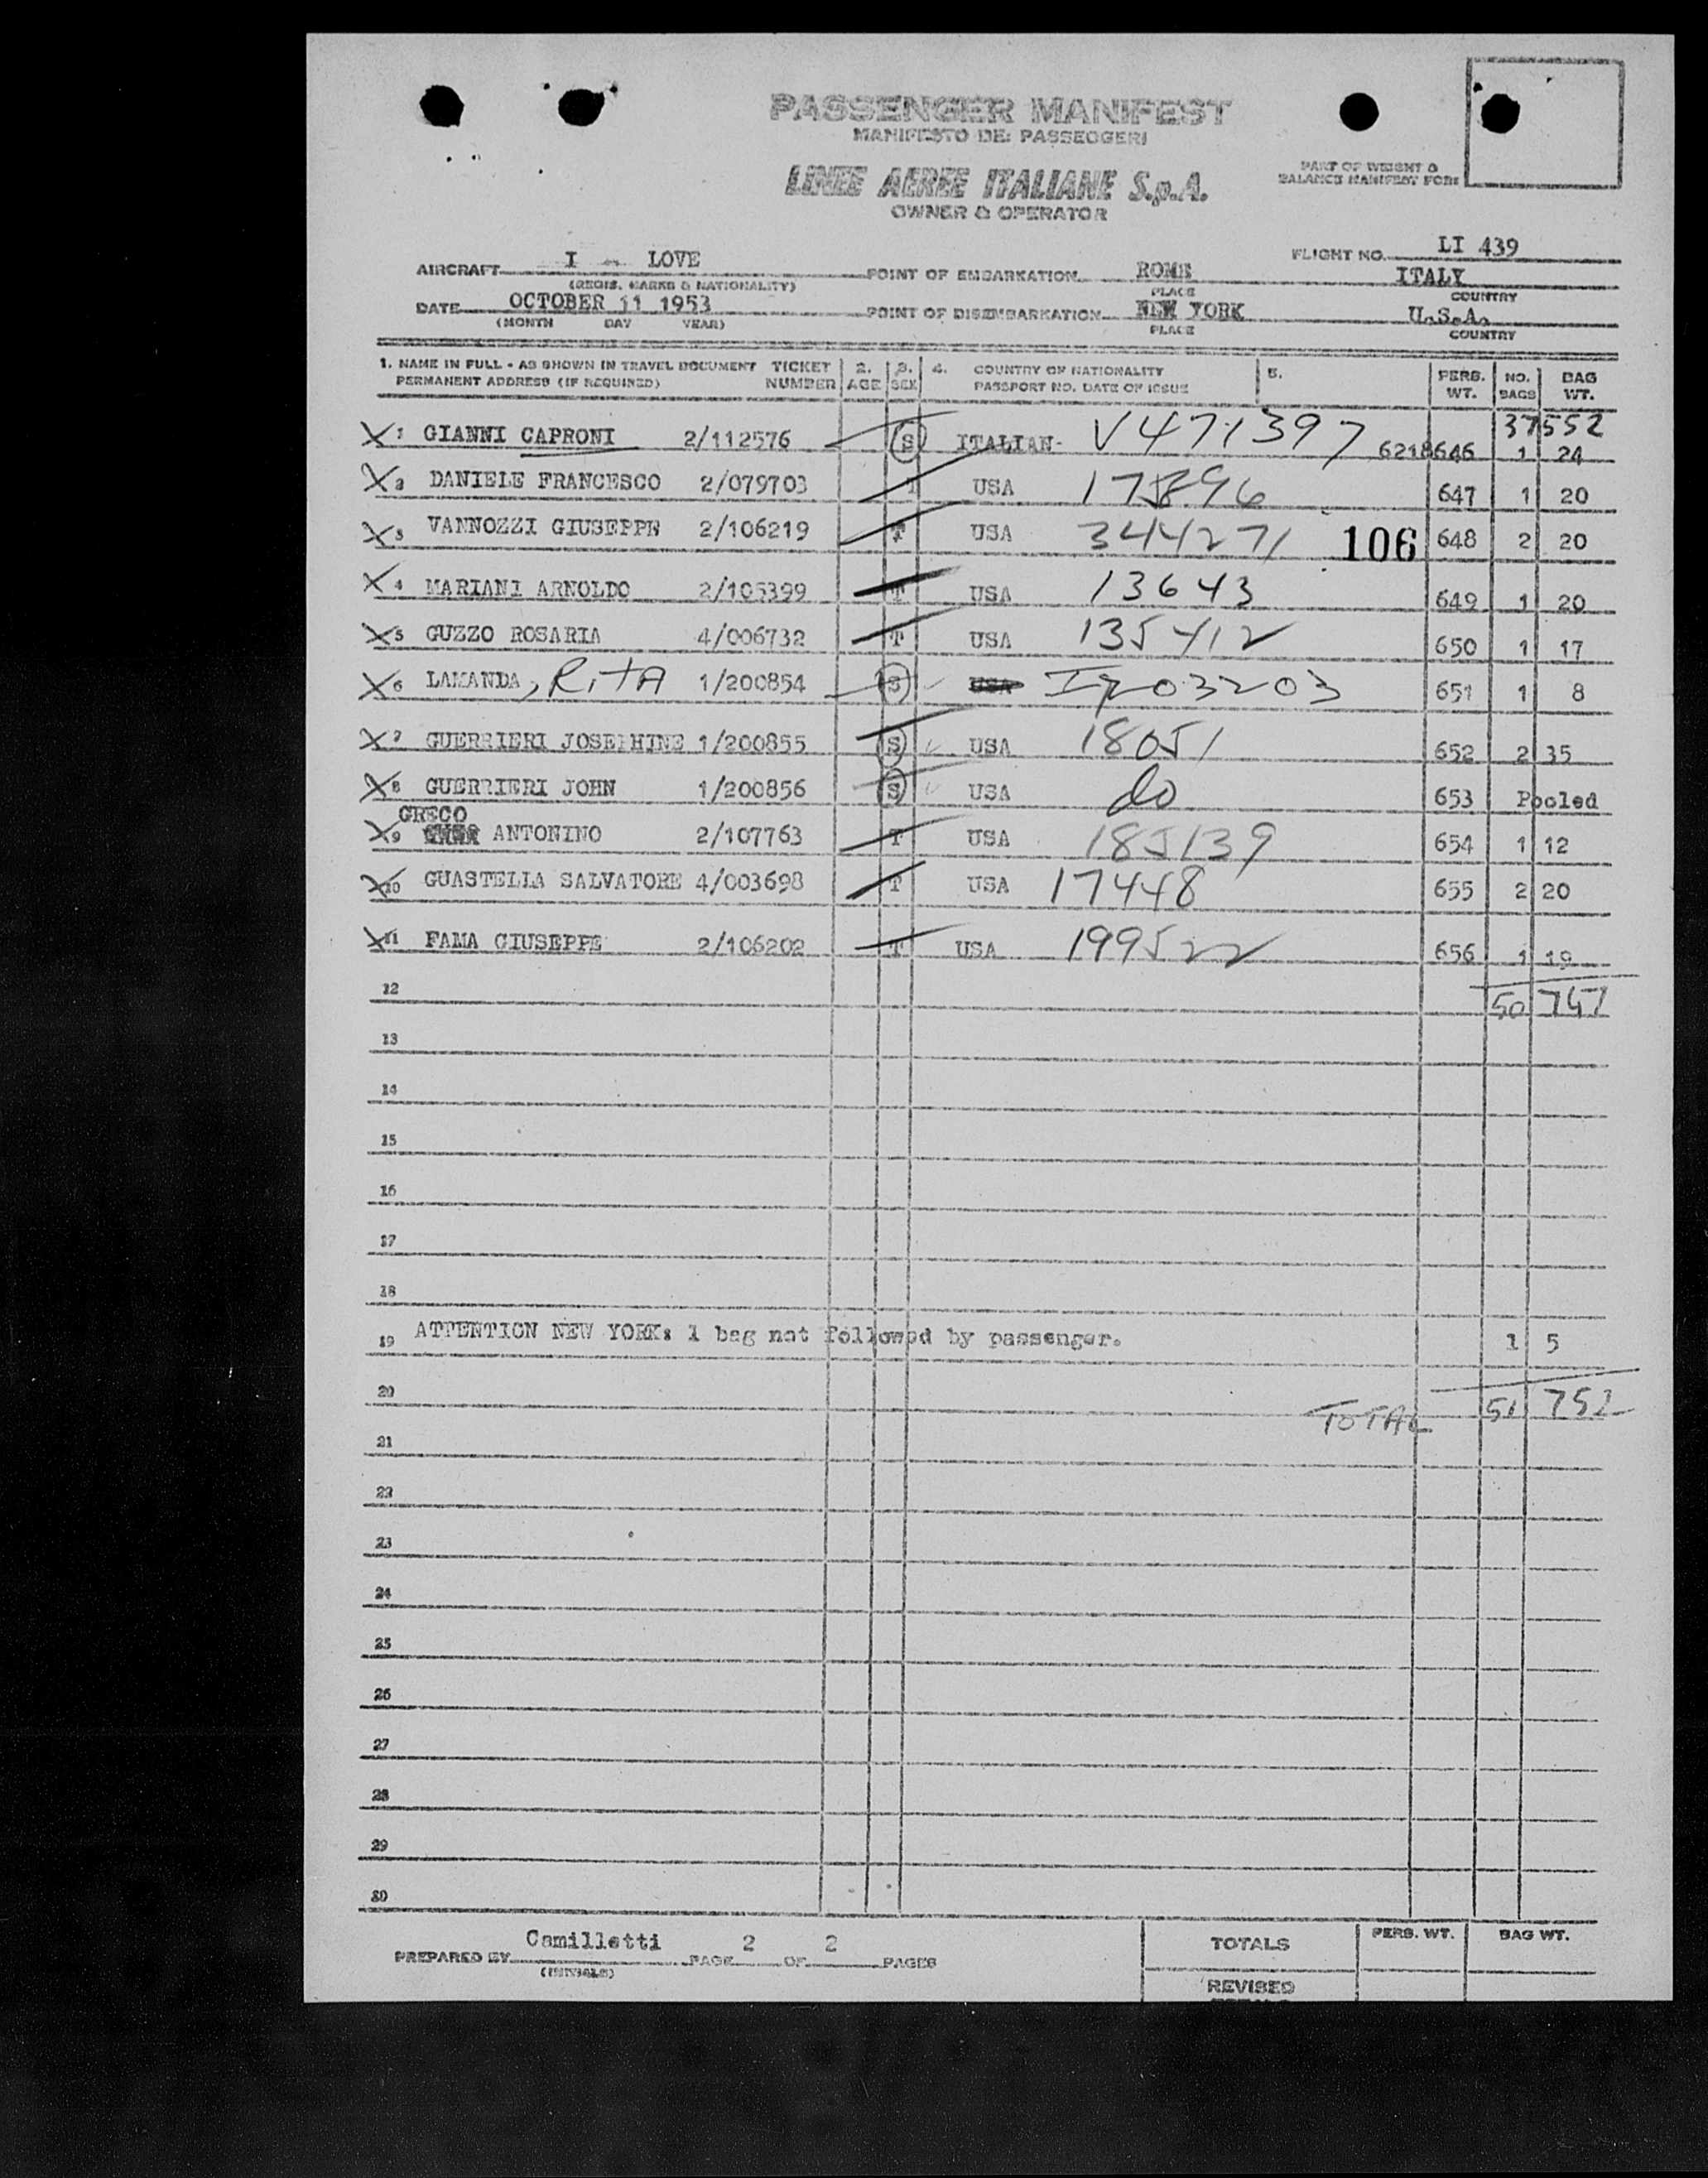 PASSENGER MANIFEST
MANIFESTO DEI PASSEGGERI
LINEE AEREE ITALIANE S.p.A.
OWNER & OPERATOR
PART OF WEIGHT &
BALANCE MANIFEST FORM
FLIGHT NO. LI 439
AIRCRAFT I - LOVE POINT OF EMBARKATION ROME ITALY
(REGIS. MARKS & NATIONALITY) PLACE COUNTRY
DATE OCTOBER 11 1953 POINT OF DISEMBARKATION NEW YORK U.S.A.
(MONTH DAY YEAR) PLACE COUNTRY
1. NAME IN FULL - AS SHOWN IN TRAVEL DOCUMENT TICKET 2. 3. 4. COUNTRY OF NATIONALITY 5. PERS. NO. BAG
PERMANENT ADDRESS (IF REQUIRED) NUMBER AGE SEX PASSPORT NO. DATE OF ISSUE WT. BAGS WT.
37552
1 GIANNI CAPRONI 2/112576 S ITALIAN- V471397 6218646 1 24
2 DANIELE FRANCESCO 2/079703 T USA 17896 647 1 20
3 VANNOZZI GIUSEPPE 2/106219 T USA 344271 106 648 2 20
4 MARIANI ARNOLDO 2/105399 T USA 13643 649 1 20
5 GUZZO ROSARIA 4/006732 T USA 135412 650 1 17
6 LAMANDA, RitA 1/200854 S USA I703203 651 1 8
7 GUERRIERI JOSEPHINE 1/200855 S USA 18051 652 2 35
8 GUERRIERI JOHN 1/200856 S USA do 653 Pooled
GRECO
9 ANTONINO 2/107763 T USA 185139 654 1 12
10 GUASTELLA SALVATORE 4/003698 T USA 17448 655 2 20
11 FAMA GIUSEPPE 2/106202 T USA 199522 656 1 19
12 50 747
13
14
15
16
17
18
19 ATTENTION NEW YORK: 1 bag not followed by passenger. 1 5
20 TOTAL 51 752
21
22
23
24
25
26
27
28
29
30
PREPARED BY Camilletti PAGE 2 OF 2 PAGES
(INITIALS)
TOTALS PERS. WT. BAG WT.
REVISED